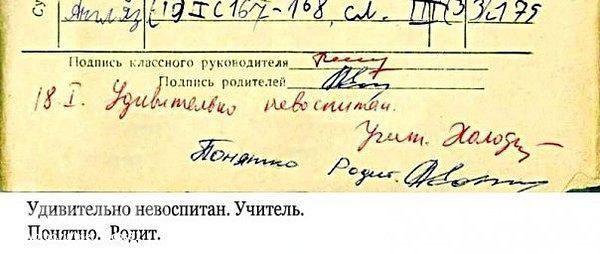 Англ яз (19) I с 167-168, сл. III (3) 3 с 175
Подпись классного руководителя
Подпись родителей
18 I. Удивительно невоспитан.
Учит. Холод
Понятно Родит.
Удивительно невоспитан. Учитель.
Понятно. Родит.